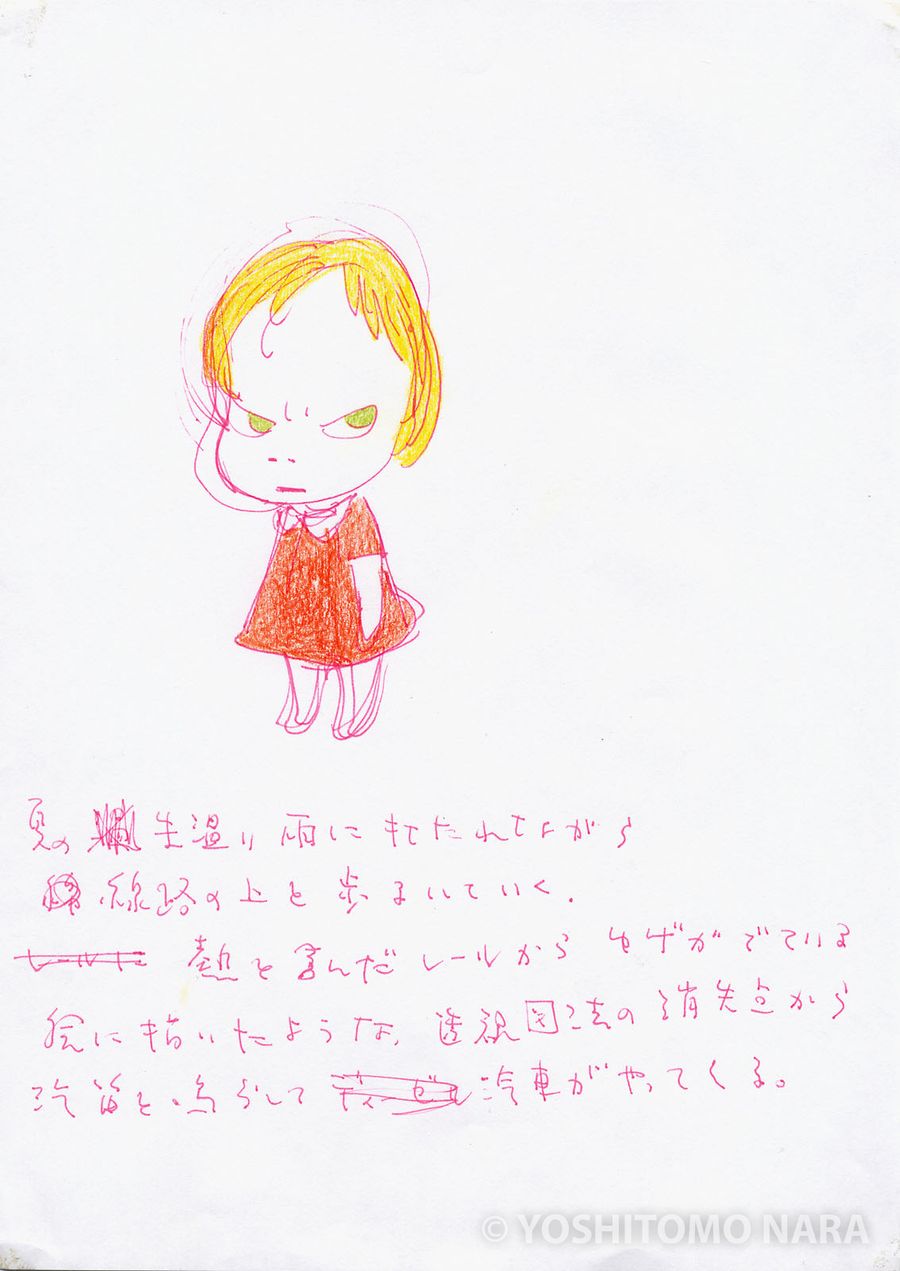 夏の 生温い 雨に 打たれながら
線路の上を 歩るいていく.
レールに 熱を 含んだ レールから ゆげがでている
絵に描いたような, 透視図法の 消失点から
汽笛を 鳴らして ディーゼル 汽車が やってくる。
© YOSHITOMO NARA